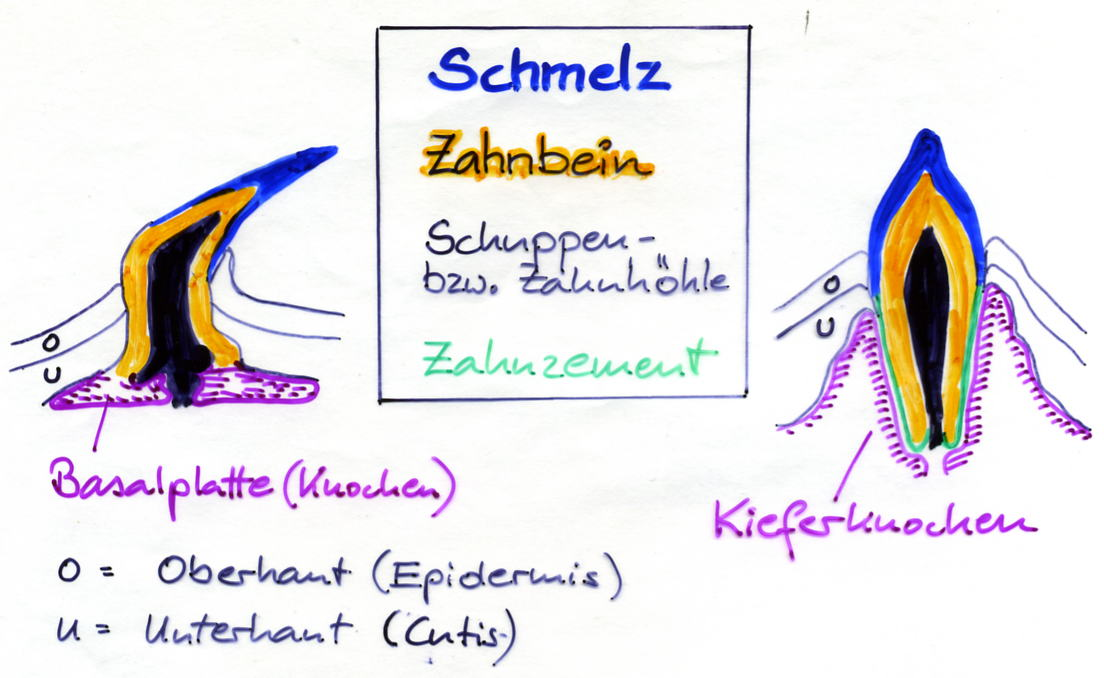 Schmelz
Zahnbein
Schuppen-
bzw. Zahnhöhle
Zahnzement
O
U
O
U
Basalplatte (Knochen)
Kieferknochen
O = Oberhaut (Epidermis)
U = Unterhaut (Cutis)